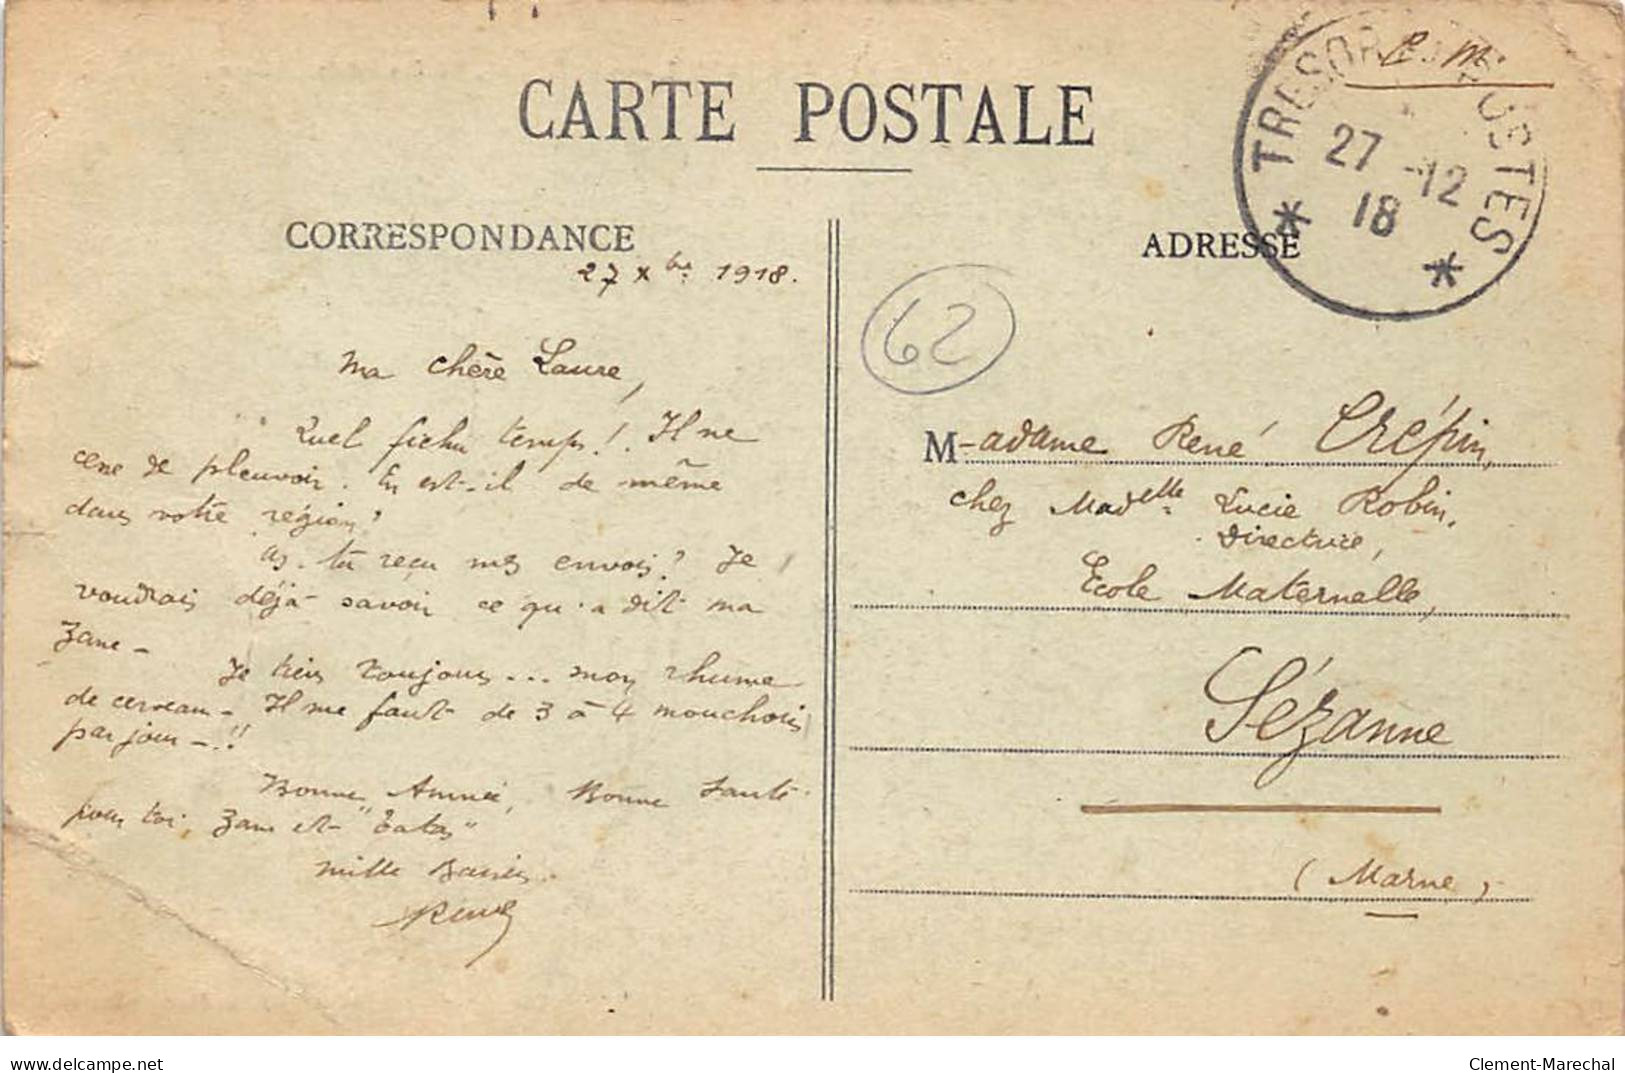 CARTE POSTALE
CORRESPONDANCE
27 Xbre 1918.
Ma chère Laure,
Quel fichu temps ! Il ne
cesse de pleuvoir. En est-il de même
dans votre région ?
As-tu reçu mes envois ? Je
voudrais déjà savoir ce qu'a dit ma
Zane -
Je tiens toujours ... mon rhume
de cerveau - Il me faut de 3 à 4 mouchoirs
par jour - !!
Bonne Année, Bonne Santé
pour toi, Zane et "Tatas"
Mille Baisers.
René
F. M.
TRESOR ET POSTES
27 -12
18
ADRESSE
62
M-adame René Crépin,
chez Madelle Lucie Robin,
Directrice,
Ecole Maternelle,
Sézanne
(Marne)
delcampe.net
Clement-Marechal